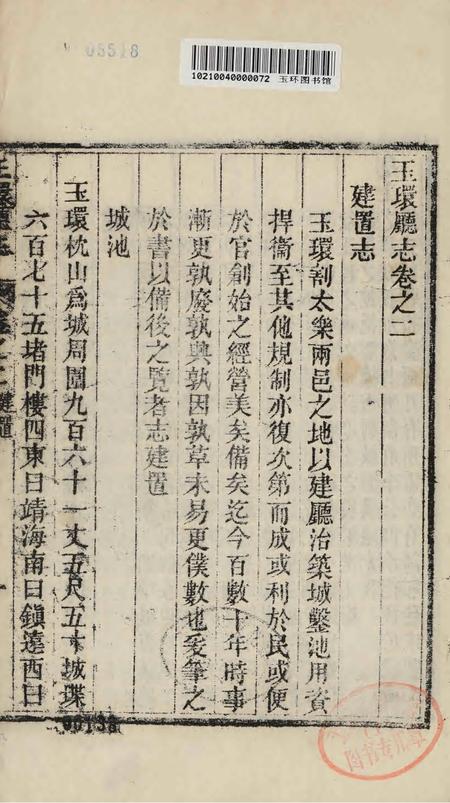 05518
10210040000072 玉环图书馆
玉環廳志卷之二
建置志
玉環割太樂兩邑之地以建廳治築城鑿池用資
捍衞至其他規制亦復次第而成或利於民或便
於官創始之經營美矣備矣迄今百數十年時事
漸更孰廢孰興孰因孰革未易更僕數也爰筆之
於書以備後之覽者志建置
城池
玉環枕山爲城周圍九百六十一丈五尺五寸城堞
六百七十五堵門樓四東曰靖海南曰鎮遠西曰
玉環廳志 卷之二 建置
图书专用章